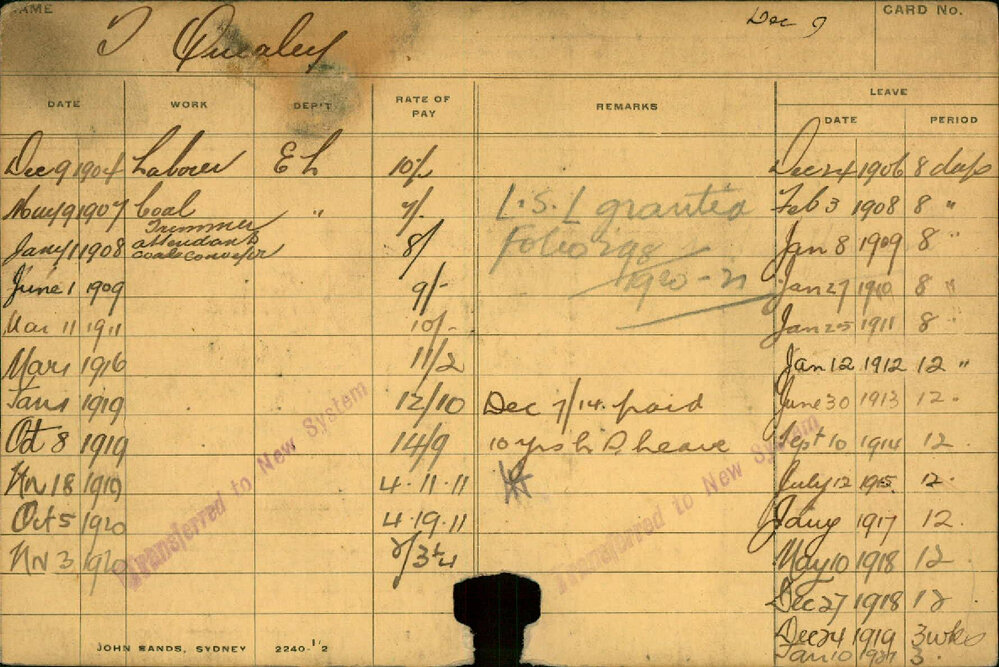 NAME CARD No.
T Quealey Dec 9
DATE WORK DEP'T RATE OF PAY REMARKS LEAVE
DATE PERIOD
Dec 9 1904 Laborer E L 10/- Dec 24 1906 8 days
May 9 1907 Coal " 7/- L.S.L granted Feb 3 1908 8 "
Trimmer
Jany 1 1908 attendant 8/ Folio 298 Jan 8 1909 8 "
coal conveyor
June 1 1909 9/- 1920-21 Jan 27 1910 8 "
Mar 11 1911 10/- Jan 25 1911 8 "
Mar 1 1916 11/2 Jan 12 1912 12 "
Jan 1 1919 12/10 Dec 7/14 paid June 30 1913 12 "
Oct 8 1919 14/9 10 yrs L S leave Sept 10 1914 12
Nv 18 1919 4-11-11 July 12 1915 12
Oct 5 1920 4.19.11 1917 12
Nv 3 1920 May 10 1918 12
Dec 27 1918 12
Dec 24 1919 3 wks
Jan 10 3
Transferred to New System
Transferred to New System
JOHN SANDS, SYDNEY 2240-1/2